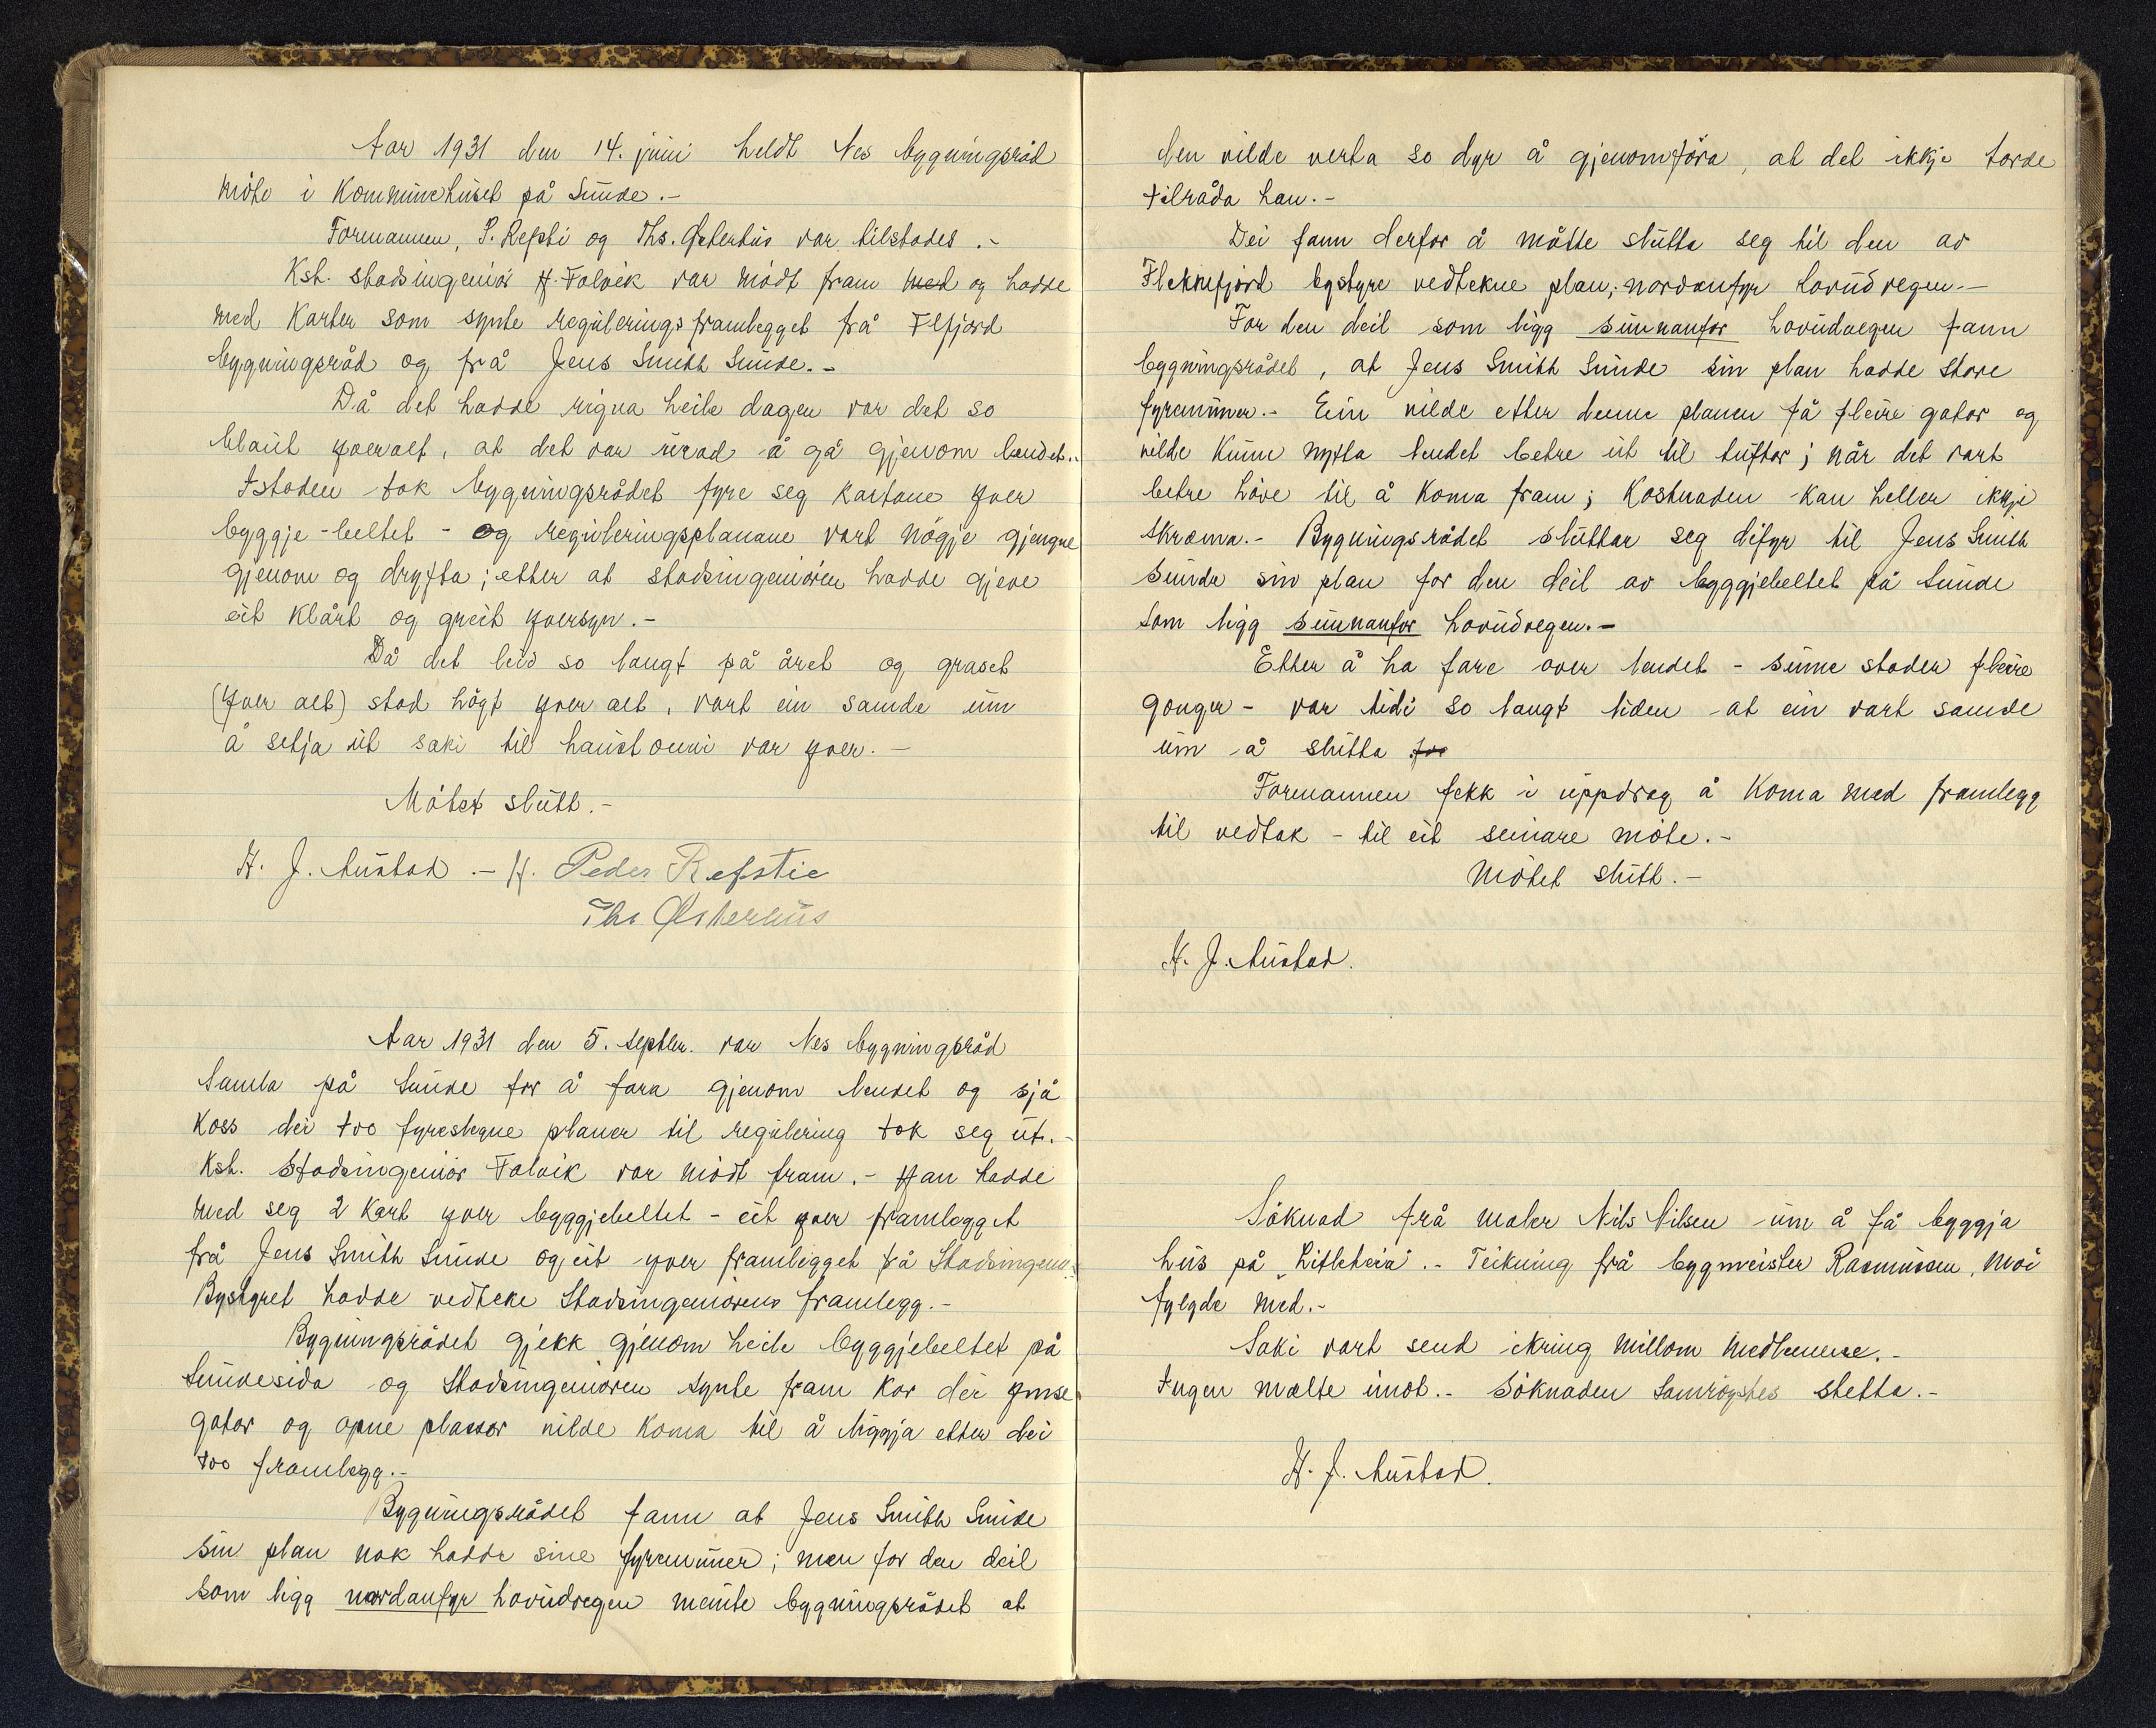 Aar 1931 den 14. juni heldt Nes bygningsråd
möte i Kommunehuset på Sunde.-
Formannen, P. Refsti og Ths. Österhus var tilstades.-
Kst. stadsingeniör H. Folvik var mödt fram med og hadde
med Karter som synte reguleringsframlegget frå Flfjord
bygningsråd og frå Jens Smith Sunde.-
Då det hadde rigna heile dagen var det so
blautt yveralt, at det var uråd å gå gjenom lendet..
Istaden tok bygningsrådet fyre seg kartane yver
byggje-beltet - og reguleringsplanane vart nögje gjengne
gjenom og dryfta; etter at stadsingeniören hadde gjeve
eit klårt og greit yversyn.-
Då det leid so langt på året og graset
(yver alt) stod högt yver alt, vart ein samde um
å setja ut saki til haustonni var yver.-
Mötet slutt.-
H. J. Austad .- H. Peder Refstie
Ths Østerhus
Aar 1931 den 5. septbr. var Nes bygningsråd
samla på Sunde for å fara gjenom lendet og sjå
Koss dei tvo fyreslegne planer til regulering tok seg ut.-
Kst. Stadsingeniör Folvik var mödt fram.- Han hadde
med seg 2 Kart yver byggjebeltet - eit yver framlegget
frå Jens Smith Sunde og eit yver framlegget frå Stadsingeniö.
Bystyret hadde vedteke Stadsingeniörens framlegg.-
Bygningsrådet gjekk gjenom heile byggjebeltet på
Sundesida og Stadsingeniören synte fram kor dei ymse
gator og opne plassar vilde koma til å liggja etter dei
tvo framlegg.-
Bygningsrådet fann at Jens Smith Sunde
sin plan nok hadde sine fyremuner; men for den deil
som ligg nordanfyr hovudvegen meinte bygningsrådet at
den vilde verta so dyr å gjenomföra, at det ikkje torde
tilråda han.-
Dei fann derfor å måtte slutta seg til den av
Flekkefjord bystyre vedtekne plan, nordanfyr hovudvegen.-
For den deil som ligg sunnanfor hovudvegen fann
bygningsrådet, at Jens Smith Sunde sin plan hadde store
fyremuner.- Ein vilde etter denne planen få fleire gator og
vilde kunne nytta lendet betre ut til tuftar; når det vart
betre höve til å koma fram; Kostnaden kan heller ikkje
skræma.- Bygningsrådet sluttar seg difyr til Jens Smith
Sunde sin plan for den deil av byggjebeltet på Sunde
som ligg sunnanfor hovudvegen.-
Etter å ha fare over lendet - sume stader fleire
gonger - var tidi so langt liden at ein vart samde
um å slutta for
Formannen fekk i uppdrag å koma med framlegg
til vedtak - til eit seinare möte.-
Mötet slutt.-
H. J. Austad.
Söknad frå maler Nils Nilsen um å få byggja
hus på "Litleheia".- Teikning frå bygmeister Rasmussen, Moi
fylgde med.-
Saki vart send ikring millom medlemene.-
Ingen mælte imot.- Söknaden samröystes stetta.-
H. J. Austad.